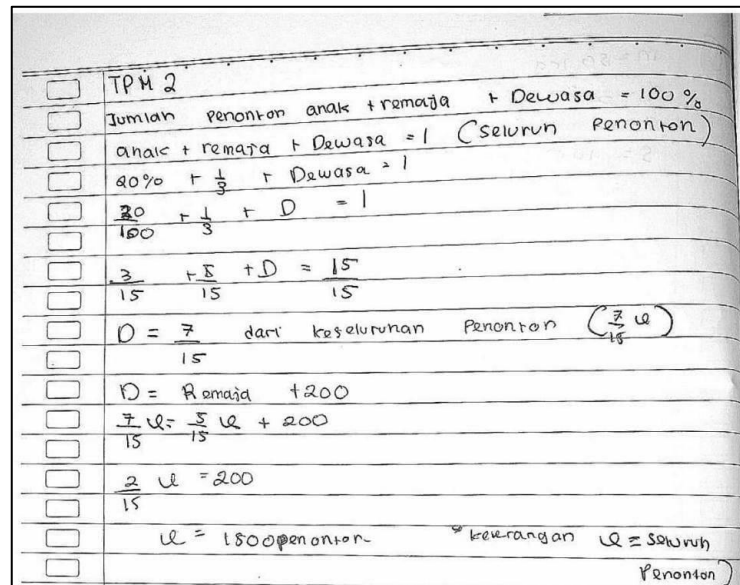 TPM 2
Jumlah Penonton anak + remaja + Dewasa = 100 %
anak + remaja + Dewasa = 1 (seluruh Penonton)
20% + 1/3 + Dewasa = 1
20/100 + 1/3 + D = 1
3/15 + 5/15 + D = 15/15
D = 7/15 dari keseluruhan Penonton (7/15 u)
D = Remaja + 200
7/15 u = 5/15 u + 200
2/15 u = 200
u = 1500 penonton *keterangan u = seluruh
Penonton)